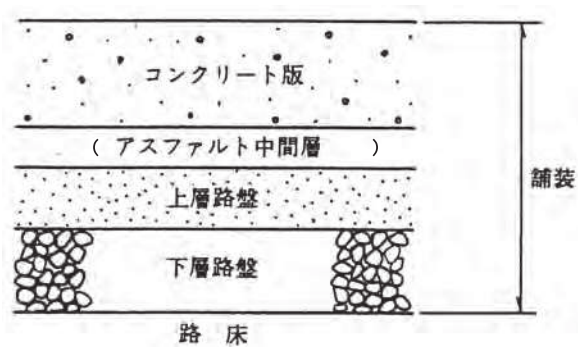 コンクリート版
(アスファルト中間層)
上層路盤
舗装
下層路盤
路床